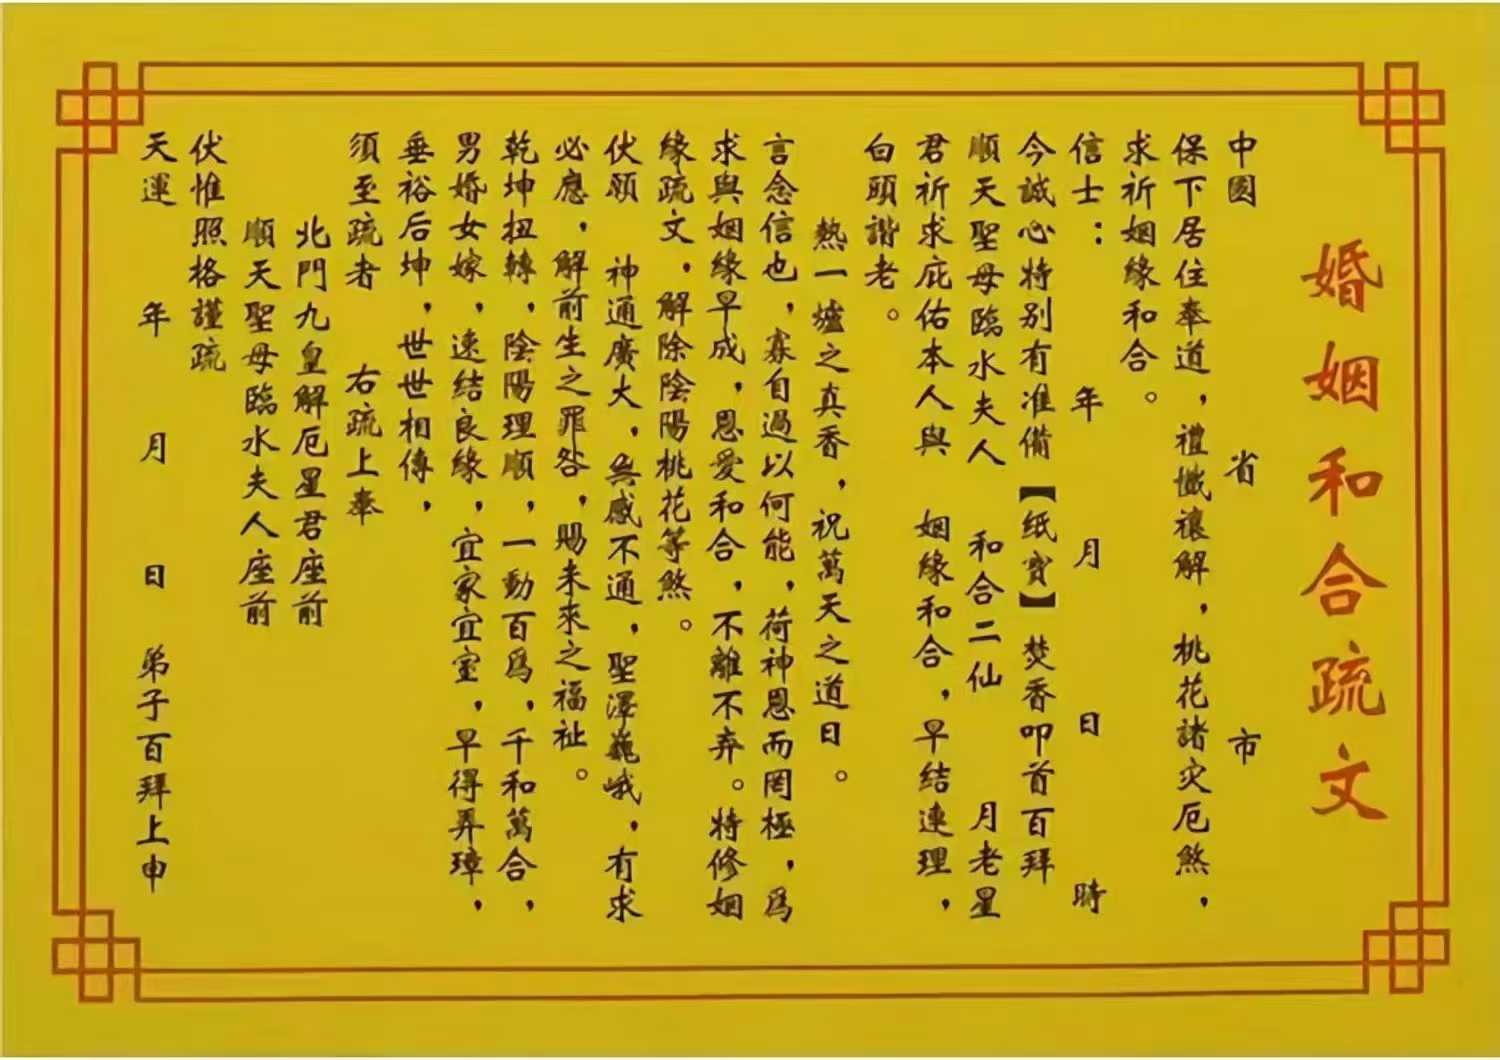 婚姻和合疏文
中国 省 市
保下居住奉道，禮懺禳解，桃花諸灾厄煞，
求祈姻緣和合。
信士： 年 月 日 時
今誠心特别有准備【纸寳】焚香叩首百拜
順天聖母臨水夫人 和合二仙 月老星
君祈求庇佑本人與 姻緣和合，早结連理，
白頭諧老。
熱一爐之真香，祝萬天之道日。
言念信也，寡自過以何能，荷神恩而罔極，爲
求與姻緣早成，恩愛和合，不離不弃。特修姻
緣疏文，解除陰陽桃花等煞。
伏願 神通廣大，無感不通，聖澤巍峨，有求
必應，解前生之罪咎，賜未來之福祉。
乾坤扭轉，陰陽理順，一動百爲，千和萬合，
男婚女嫁，速结良緣，宜家宜室，早得弄璋，
垂裕后坤，世世相傳，
須至疏者 右疏上奉
北門九皇解厄星君座前
順天聖母臨水夫人座前
伏惟照格謹疏
天運 年 月 日 弟子百拜上申